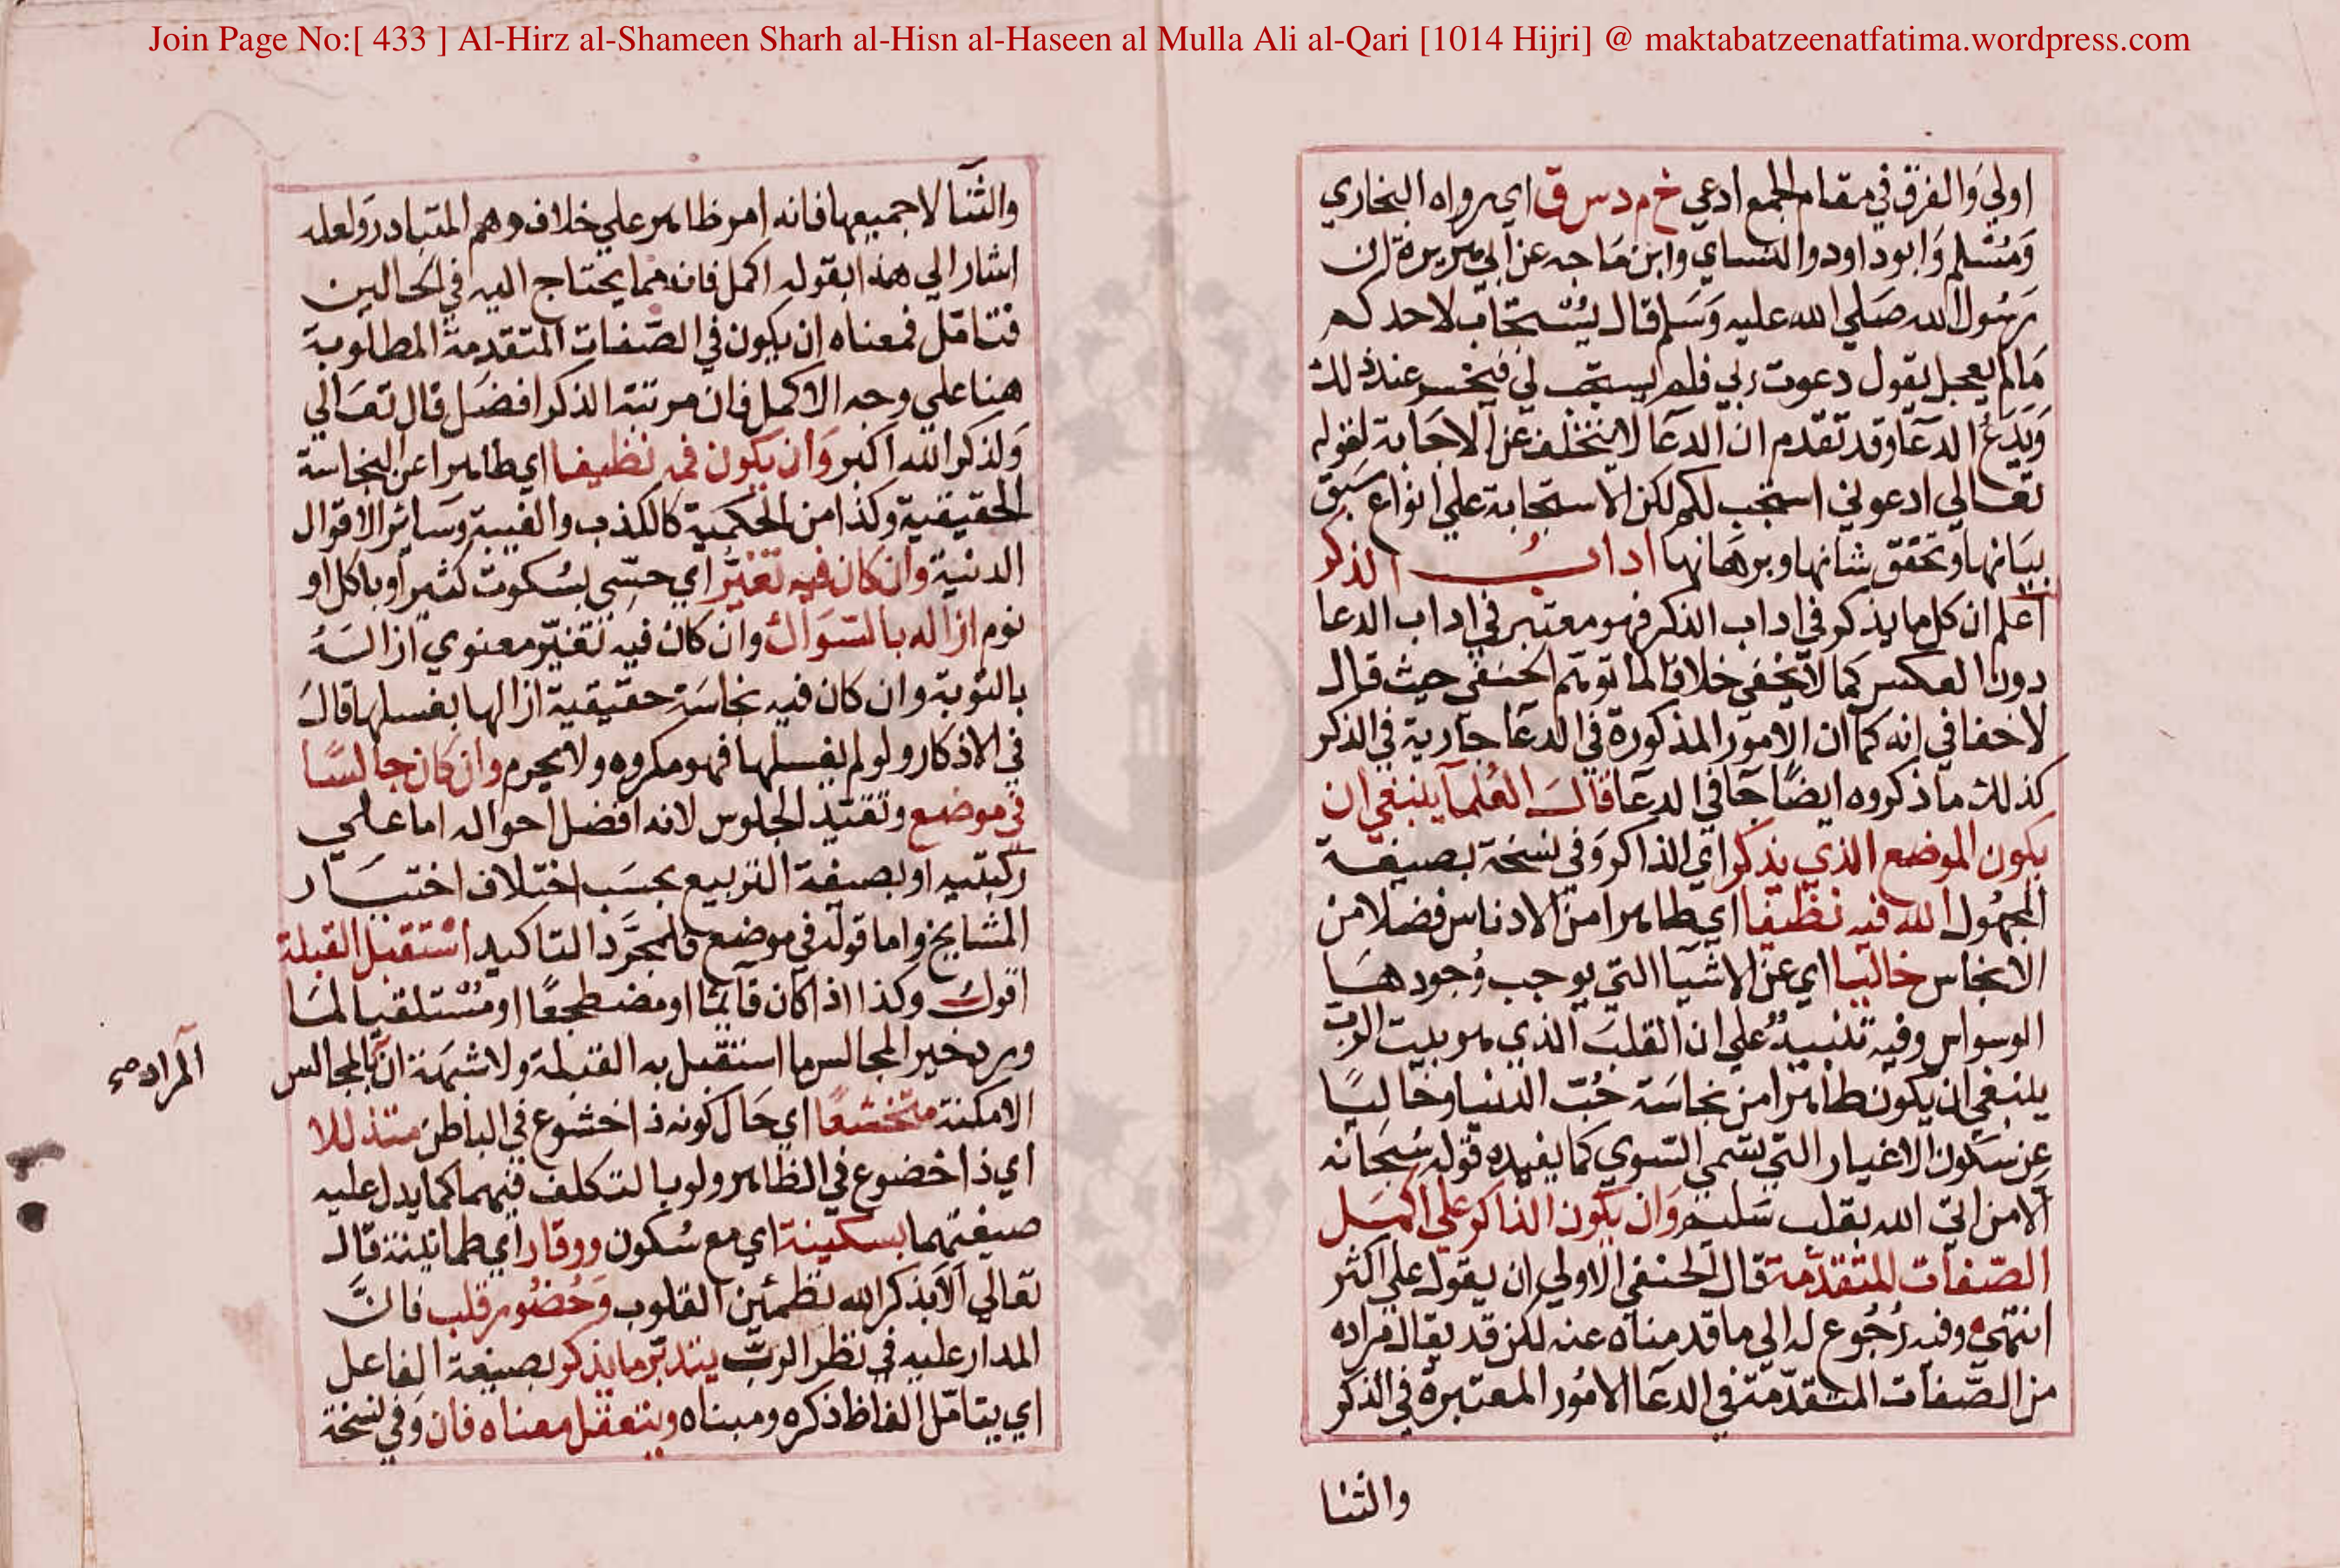 Join Page No:[ 433 ] Al-Hirz al-Shameen Sharh al-Hisn al-Haseen al Mulla Ali al-Qari [1014 Hijri] @ maktabatzeenatfatima.wordpress.com
اولي والفرق في مقام الجمع ادعي خ م د س ق اي رواه البخاري
ومسلم وابو داود والنساي وابن ماجه عن ابي هريرة ان
رسول الله صلي الله عليه وسلم قال يستجاب لاحدكم
مالم يعجل يقول دعوت ربي فلم يستجب لي فيخسر عند ذلك
ويدع الدعا وقد تقدم ان الدعا لا يتخلف عن الاجابة لقوله
تعالي ادعوني استجب لكم لكن الاستجابة علي انواع سبق
بيانها وتحقق شانها وبرهانها اداب الذكر
اعلم ان كل ما يذكر في اداب الذكر فهو معتبر في اداب الدعا
دون العكس كما لا يخفي خلافا لما توهم الحنفي حيث قال
لا خفا في انه كما ان الامور المذكورة في الدعا جارية في الذكر
كذلك ما ذكروه ايضا جا في الدعا قال العلما ينبغي ان
يكون الموضع الذي يذكر اي الذاكر وفي نسخة بصيغة
المجهول الله فيه نظيفا اي طاهرا من الادناس فضلا من
الانجاس خاليا اي عن الاشيا التي يوجب وجودها
الوسواس وفيه تنبيه علي ان القلب الذي هو بيت الرب
ينبغي ان يكون طاهرا من نجاسة حب الدنيا وخاليا
عن سكون الاغيار التي تسمي السوي كما يفيده قوله سبحانه
الا من اتي الله بقلب سليم وان يكون الذاكر علي اكمل
الصفات المتقدمة قال الحنفي الاولي ان يقول علي اكثر
انتهي وفيه رجوع له الي ما قدمناه عنه لكن قد يقال مراده
من الصفات المتقدمة في الدعا الامور المعتبرة في الذكر
والثنا
والثنا لا جميعها فانه امر ظاهر علي خلاف وهم المتبادر ولعله
اشار الي هذا بقوله اكمل فانه مما يحتاج اليه في الحالين
فتامل فمعناه ان يكون في الصفات المتقدمة المطلوبة
هنا علي وجه الاكمل فان مرتبة الذكر افضل قال تعالي
ولذكر الله اكبر وان يكون فمه نظيفا اي طاهرا عن النجاسة
الحقيقية وكذا من الحكمية كالكذب والغيبة وساير الاقوال
الدنية وان كان فيه تغير اي حسي بسكوت كثير او باكل او
نوم ازاله بالسواك وان كان فيه تغير معنوي ازاله
بالتوبة وان كان فيه نجاسة حقيقية ازالها بغسلها قال
في الاذكار ولو لم يغسلها فهو مكروه ولا يحرم وان كان جالسا
في موضع وتقييد الجلوس لانه افضل احواله اما علي
ركبتيه او بصيغة التربيع بحسب اختلاف اختيار
المشايخ واما قوله في موضع فلمجرد التاكيد استقبل القبلة
اقول وكذا اذا كان قائما او مضطجعا او مستلقيا لما
ورد خير المجالس ما استقبل به القبلة ولا شبهة ان بالمجالس
المراد صح
الامكنة متخشعا اي حال كونه ذا خشوع في الباطن متذللا
اي ذا خضوع في الظاهر ولو بالتكلف فيهما كما يدل عليه
صيغتهما بسكينة اي مع سكون ووقار اي طمانينة قال
تعالي الا بذكر الله تطمئن القلوب وحضور قلب فان
المدار عليه في نظر الرب يتدبر ما يذكر بصيغة الفاعل
اي يتامل الفاظ ذكره ومبناه ويتعقل معناه فان وفي نسخة